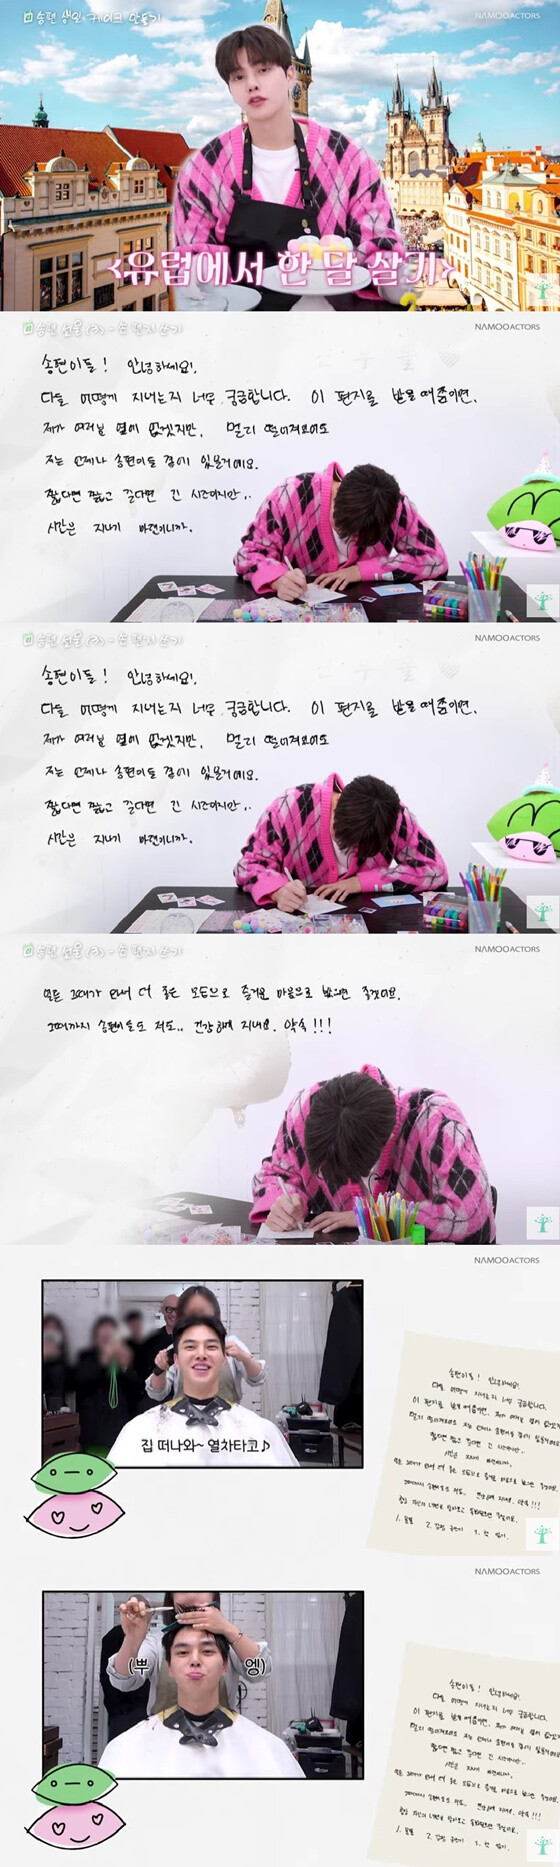 송편 생일 케이크 만들기
NAMOOACTORS
<유럽에서 한 달 살기>
송편 선물(3) - 손 편지 쓰기
NAMOOACTORS
송편이들! 안녕하세요!
다들 어떻게 지내는지 너무 궁금합니다. 이 편지를 받을 때쯤이면,
제가 여러분 옆에 없겠지만, 멀리 떨어져있어도
저는 언제나 송편이들 곁에 있을거예요.
짧다면 짧고 길다면 긴 시간이지만..
시간은 지나기 마련이니까.
송편 선물(3) - 손 편지 쓰기
NAMOOACTORS
송편이들! 안녕하세요!
다들 어떻게 지내는지 너무 궁금합니다. 이 편지를 받을 때쯤이면,
제가 여러분 옆에 없겠지만, 멀리 떨어져있어도
저는 언제나 송편이들 곁에 있을거예요.
짧다면 짧고 길다면 긴 시간이지만..
시간은 지나기 마련이니까.
송편 선물(3) - 손 편지 쓰기
NAMOOACTORS
모든 그때가 와서 더 좋은 모습으로 즐거운 마음으로 봤으면 좋겠어요.
그때까지 송편이들도 저도.. 건강하게 지내요. 약속!!!
NAMOOACTORS
집 떠나와~ 열차타고♪
송편이들! 안녕하세요!
다들 어떻게 지내는지 너무 궁금합니다.
이 편지를 받을 때쯤이면,
NAMOOACTORS
(뿌 엥)
송편이들! 안녕하세요!
다들 어떻게 지내는지 너무 궁금합니다.
이 편지를 받을 때쯤이면,